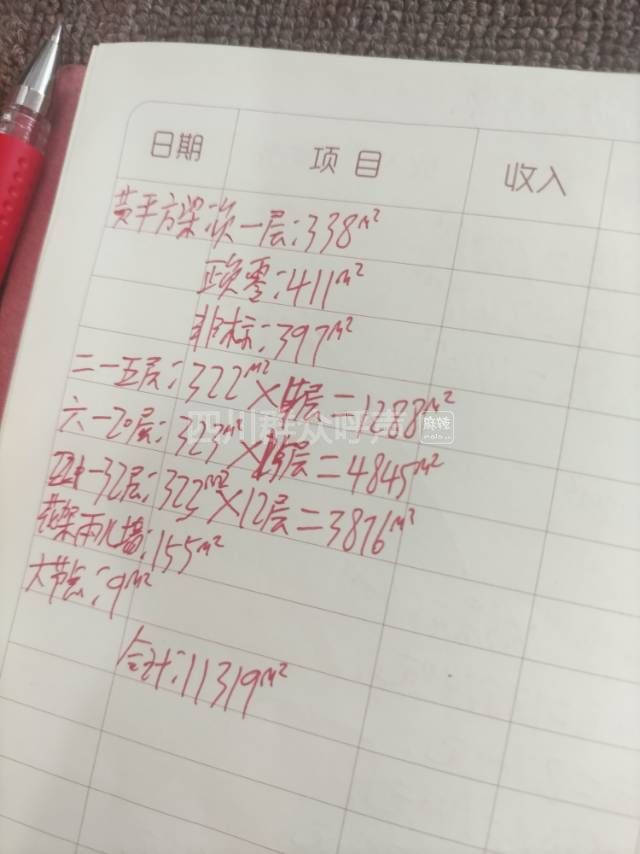 日期 项目 收入
黄平方梁 一层:338m²
正负零:411m²
非标:397m²
二一五层:322m²×4层=1288m²
六一20层:323m²×15层=4845m²
一32层:323m²×12层=3876m²
花架雨儿墙:155m²
大节点:9m²
合计:11319m²
四川群众呼声 麻辣